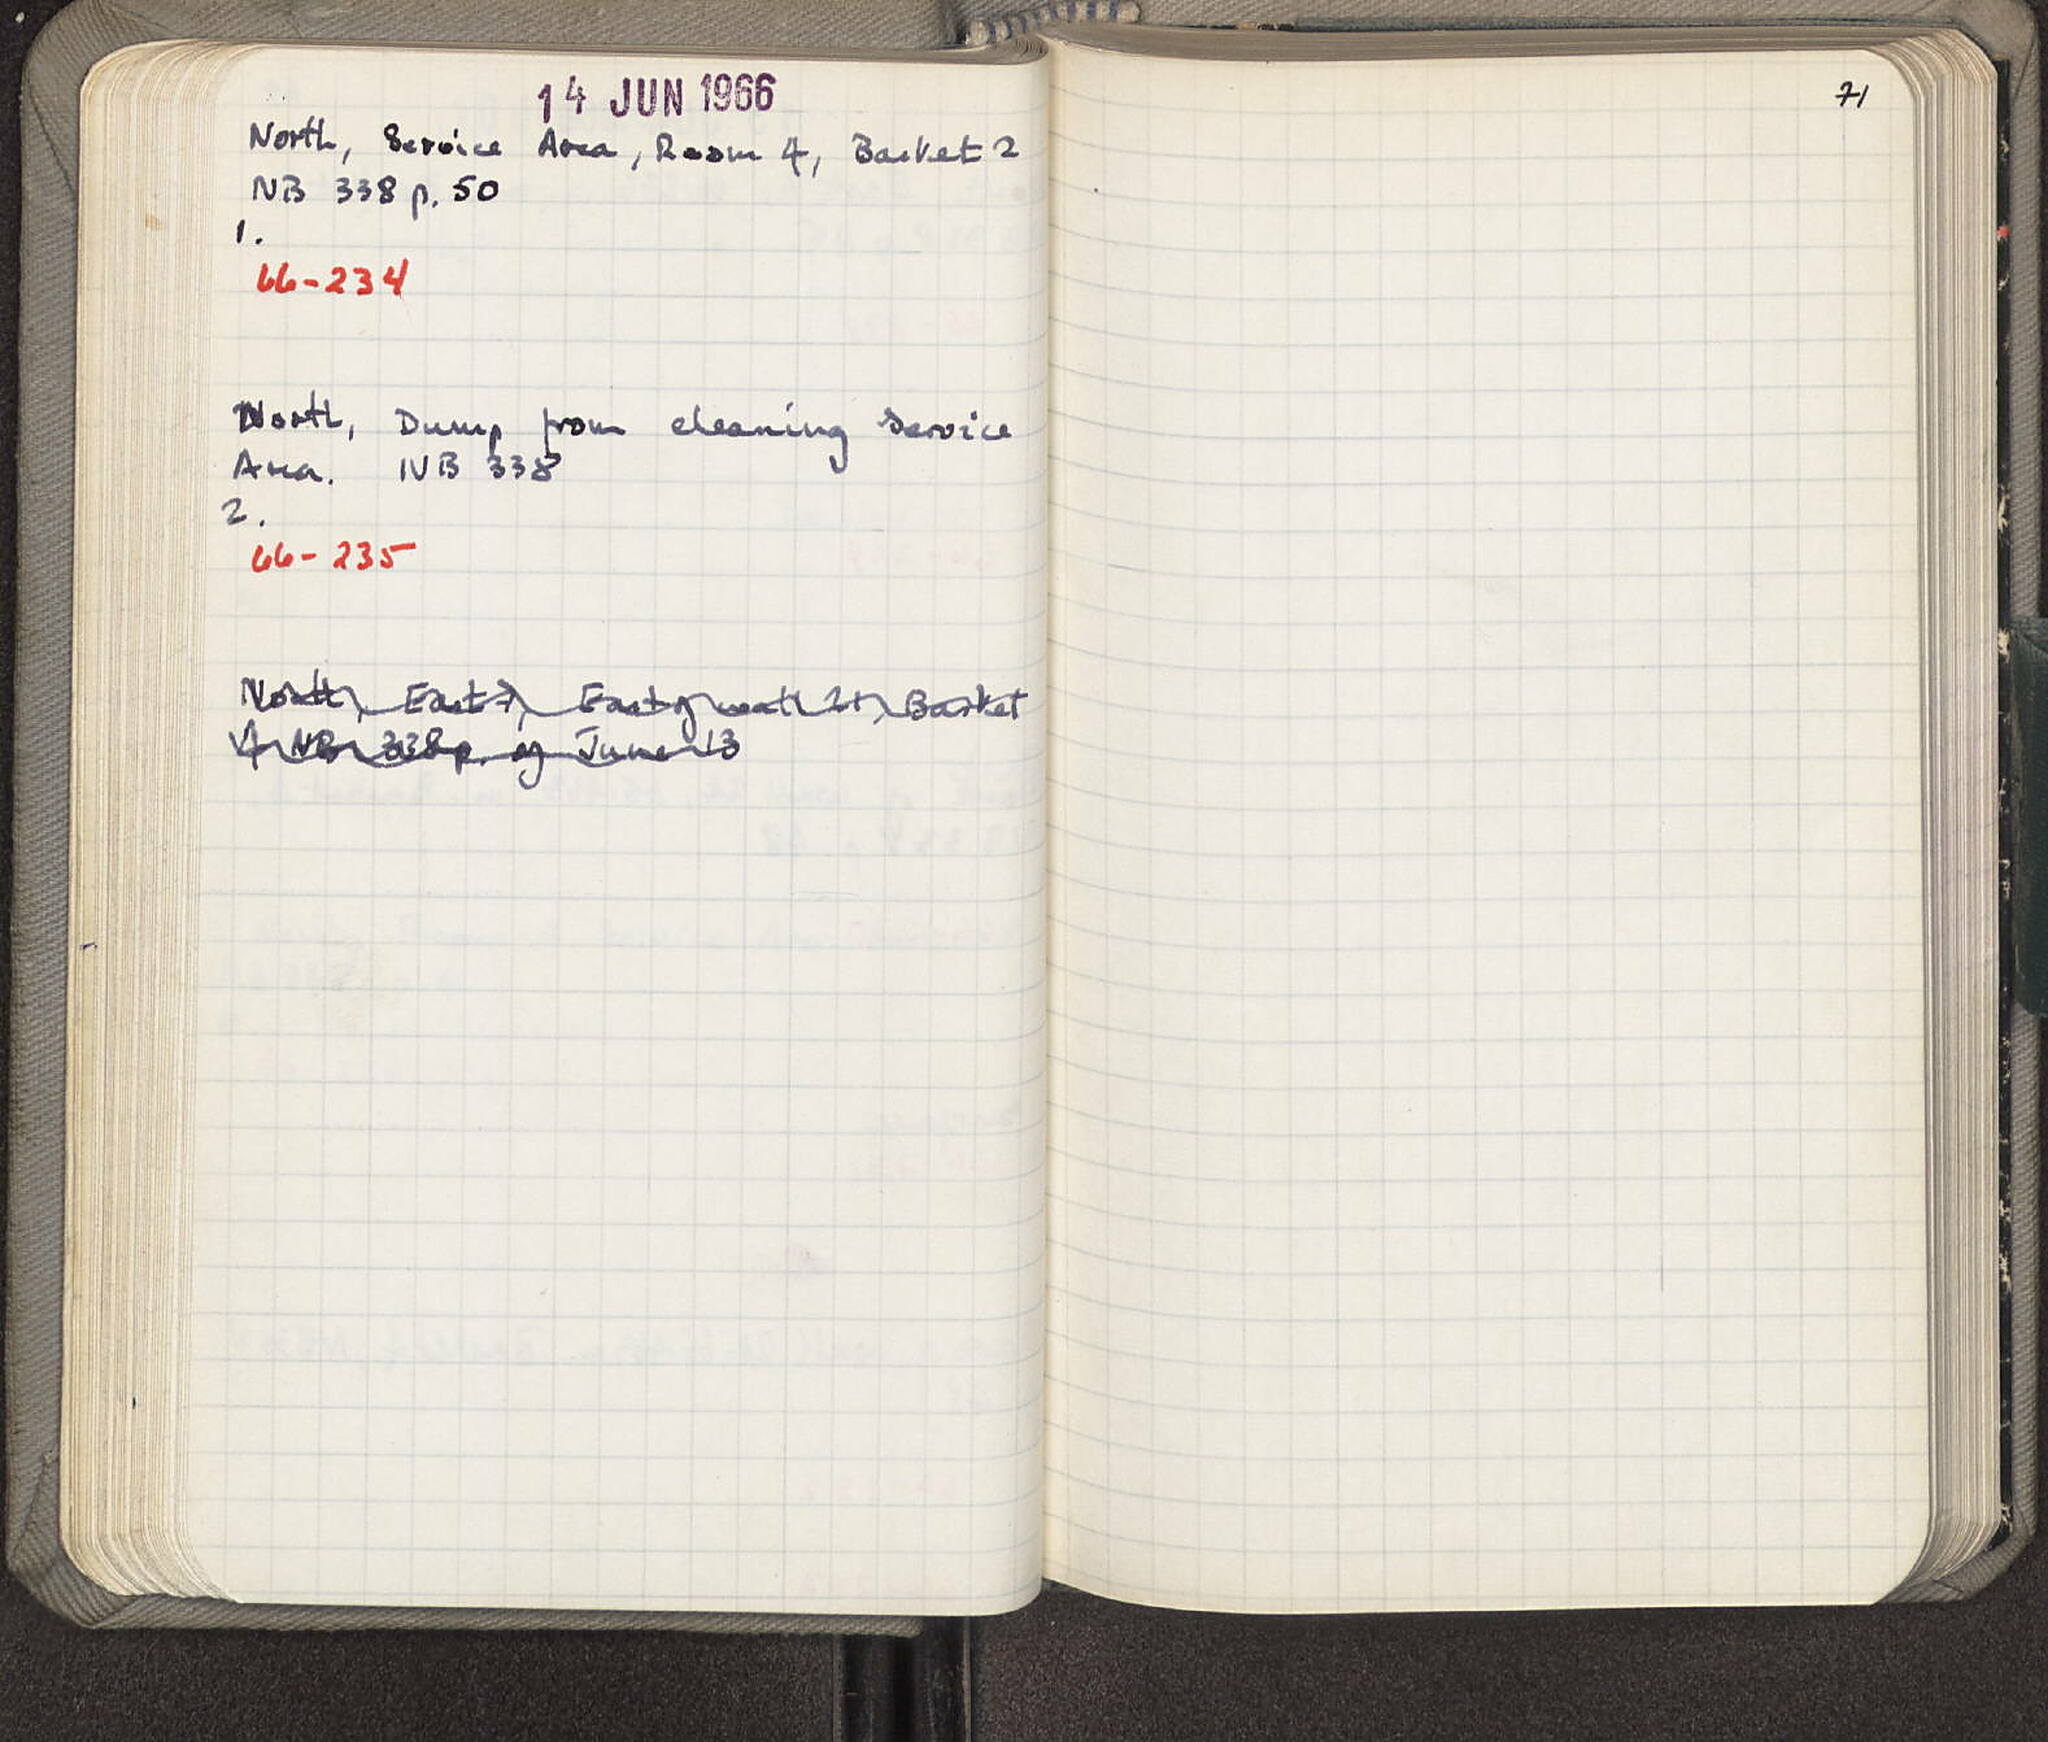 14 JUN 1966
North, Service Area, Room 4, Basket 2
NB 338 p. 50
1.
66-234
North, Dump from cleaning Service
Area. NB 338
2.
66-235
North, East 7, East of wall 21, Basket
4 NB 338 p. of June 13
71